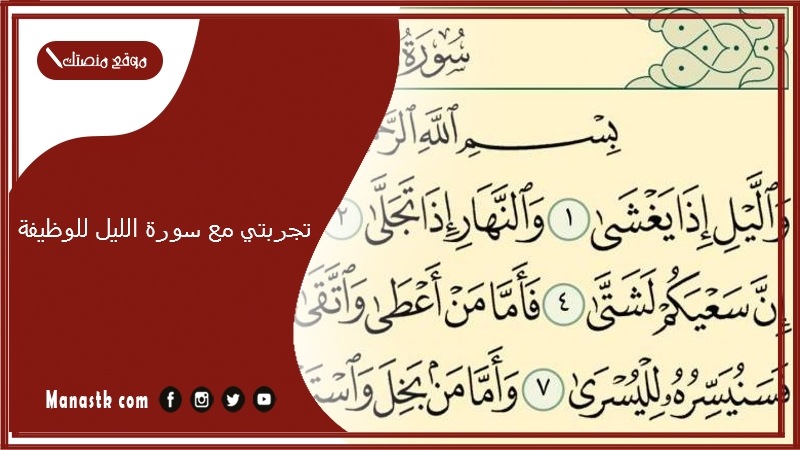 موقع منصتك
سُورَةُ
بِسْمِ ٱللَّهِ
وَٱلَّيْلِ إِذَا يَغْشَىٰ ١ وَٱلنَّهَارِ إِذَا تَجَلَّىٰ ٢
تجربتي مع سورة الليل للوظيفة
إِنَّ سَعْيَكُمْ لَشَتَّىٰ ٤ فَأَمَّا مَنْ أَعْطَىٰ وَٱتَّقَىٰ
فَسَنُيَسِّرُهُۥ لِلْيُسْرَىٰ ٧ وَأَمَّا مَنۢ بَخِلَ
Manastk com